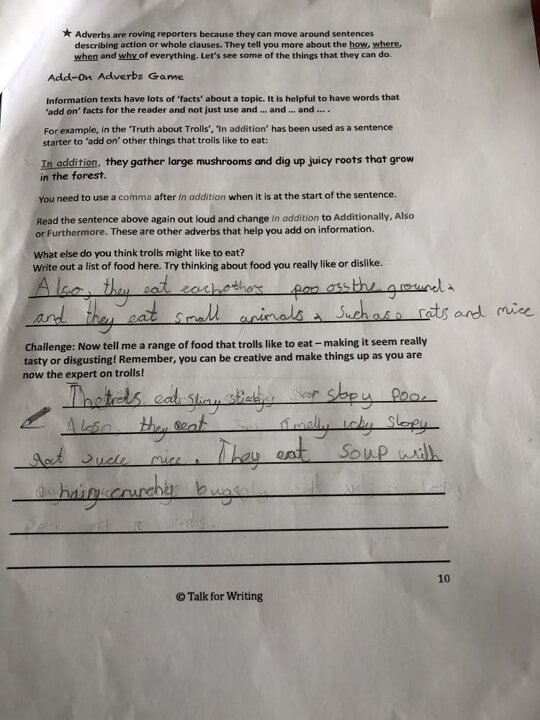 ★ Adverbs are roving reporters because they can move around sentences
describing action or whole clauses. They tell you more about the how, where,
when and why of everything. Let's see some of the things that they can do.
Add-On Adverbs Game
Information texts have lots of 'facts' about a topic. It is helpful to have words that
'add on' facts for the reader and not just use and ... and ... and ... .
For example, in the 'Truth about Trolls', 'In addition' has been used as a sentence
starter to 'add on' other things that trolls like to eat:
In addition, they gather large mushrooms and dig up juicy roots that grow
in the forest.
You need to use a comma after In addition when it is at the start of the sentence.
Read the sentence above again out loud and change In addition to Additionally, Also
or Furthermore. These are other adverbs that help you add on information.
What else do you think trolls might like to eat?
Write out a list of food here. Try thinking about food you really like or dislike.
Also, they eat eachothers poo oss the ground.
and they eat small animals, such as rats and mice
Challenge: Now tell me a range of food that trolls like to eat – making it seem really
tasty or disgusting! Remember, you can be creative and make things up as you are
now the expert on trolls!
The trols eat slimy slopy poo.
they eat smelly icky slopy
mice. They eat soup with
hairy crunchy bugs
10
© Talk for Writing